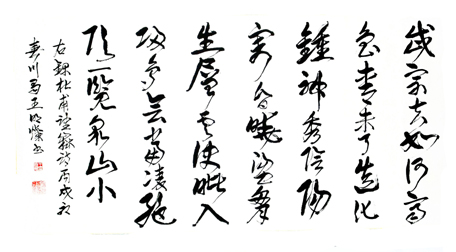 岱宗夫如何齊
魯青未了造化
鍾神秀陰陽
割昏曉盪胸
生層雲決眦入
歸鳥會當凌絕
頂一覽眾山小
右錄杜甫望嶽詩丙戌